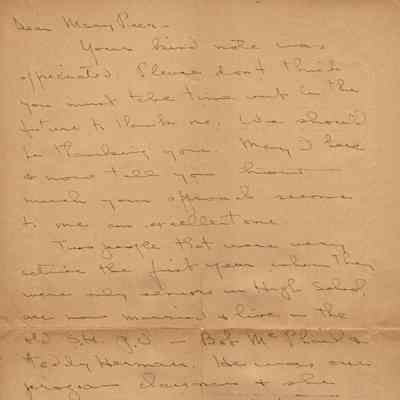 Dear Mary Peers -
Your kind note was
appreciated. Please don't think
you must take time out in the
future to thank me. We should
be thanking you. May I here
& now tell you how
much your approach seems
to me an excellent one.
Two people that were very
active the first year when they
were only seniors in High School,
are now married & live in the
old S.H. g.d - Bob McPhail &
Teddy Herman. He was our
program chairman & she